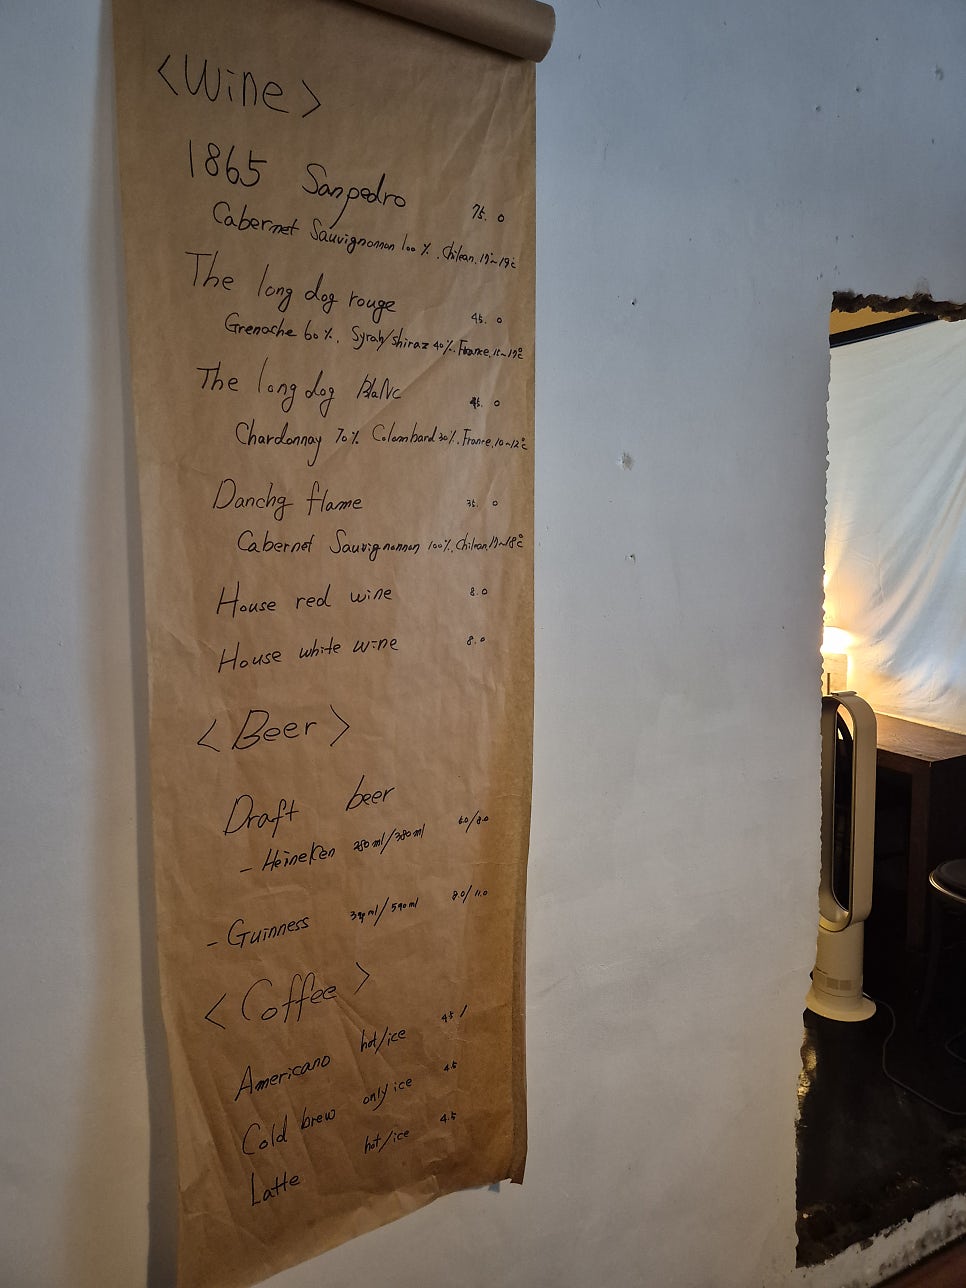 <Wine>
1865 Sanpedro 75. 0
Cabernet Sauvignonnan 100%. Chilean. 17~19℃
The long dog rouge 45. 0
Grenache 60%. Syrah/shiraz 40%. France.
The long dog BlaNc 0
Chardonnay 70% Colombard 30%. France. 10~12℃
Danchg flame 35. 0
Cabernet Sauvignonnan 100%. Chilean 17~18℃
House red wine 8.0
House white wine 8.0
<Beer>
Draft beer
- Heineken 280ml/380ml 6.0/8.0
- Guinness 8.0/11.0
<Coffee>
Americano hot/ice 4.5 /
Cold brew only ice 4.5
Latte hot/ice 4.5